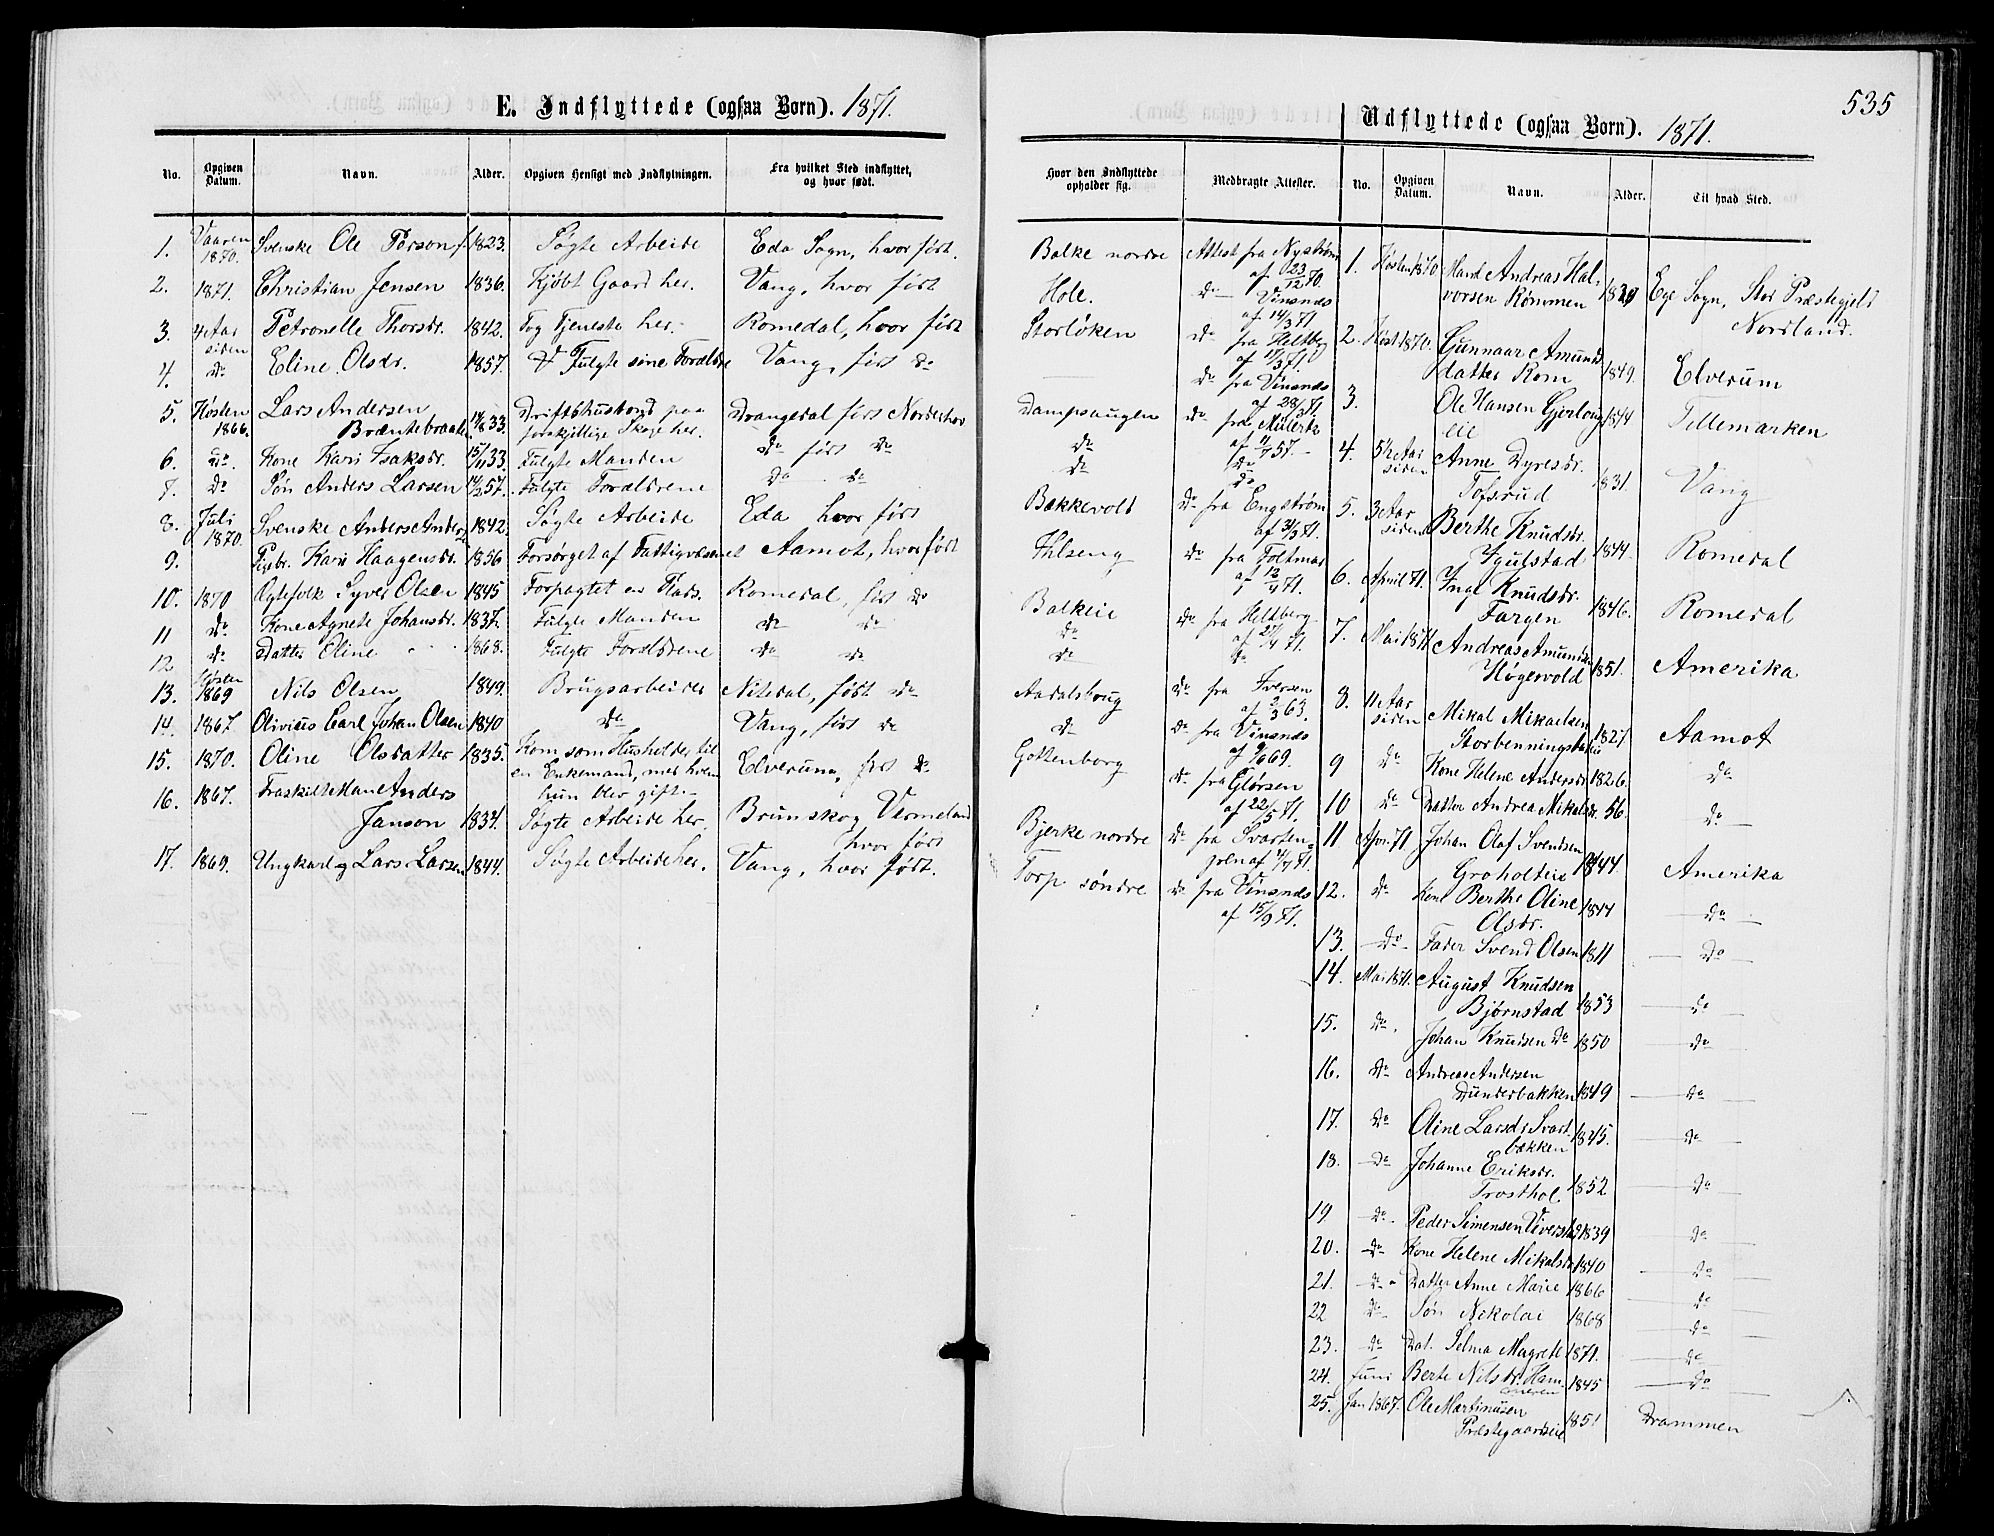 E. Indflyttede (ogsaa Børn). 1871.
No. Opgiven Datum. Navn. Alder. Opgiven Hensigt med Indflytningen. Fra hvilket Sted indflyttet, og hvor født.
1. Vaaren 1870. Svenske Ole Person f. 1823. Søgte Arbeide Eda Sogn, hvor født.
2. 1871. Christian Jensen 1836. Kjøbt Gaard her. Vang, hvor født
3. 4 Aar siden Petronelle Thorsdr. 1842. Tog Tjeneste her. Romedal, hvor født
4. do Eline Olsdr. 1857. Fulgte sine Forældre Vang, født do
5. Høsten 1866. Lars Andersen Brænnebraaten 33. Driftshusbond paa forskjellige Skoge her. Drangedal født Norderhov
6. do. Kone Kari Isaksdr. 15/11 33. Fulgte Manden do født do
7. do Søn Anders Larsen 57. Fulgte Forældrene do do
8. Juli 1870. Svenske Anders Anders 1842. Søgte Arbeide Eda hvor født
9. Kari Haagensdr. 1856 Forsørget af Fattigvæsenet Aamot, hvor født
10. 1870 Ægtefolk Syver Olsen 1845 Forpagtet en Plads. Romedal, født do
11 do Kone Agnete Johansdr. 1837. Fulgte Manden do do
12 do Datter Eline 1868. Fulgte Forældrene do do
13. 1869 Nils Olsen 1849. Brugsarbeider Nitedal, født do
14. 1867 Olivius Carl Johan Olsen 1840 do Vang, født do
15. 1870. Oline Olsdatter 1835. Kom som Husholder til en Enkemand, med hvem hun blev gift. Elverum, født do
16. 1867. Fraskilt Mand Anders Janson 1834. Søgte Arbeide her. Brunskog Vermeland hvor født
17. 1869. Ungkarl Lars Larsen 1844. Søgte Arbeide her. Vang, hvor født.
535
Hvor den Indflyttede opholder sig. Medbragte Attester.
Balke nordre Attest fra Nystrøm af 23/12 70.
Hole. do Vinsnes af 14/3 71
Storløken do fra Heltberg af 11/3 71.
do fra Vinsnes af 28/3 71.
Dampsaugen do fra Müllertz af 11/7 57.
do do
do do
Bakkevold do fra Engstrøm af 31/3 71.
Ilseng do fra Foltmar af 12/4 71.
Balkeie do fra Heltberg af 27/4 71.
do do
do
Aadalsbrug do fra Iversen af 2/3 63.
do do fra Vinsnes af 9/6 69.
Gottenborg do fra Glørsen af 22/5 71.
Bjerke nordre do fra Svartengren af 4/7 71.
Torp søndre do fra Vinsnes af 15/9 71.
Udflyttede (ogsaa Børn). 1871.
No. Opgiven Datum. Navn. Alder. Til hvad Sted.
1. Høsten 1870 Mand Andreas Halvorsen Rømmen Ege Sogn, Stor Præstegjeld Nordland.
2. Høst 1870. Gunnaar Amundsdatter Rom 1849. Elverum
3. Ole Hansen Gjerlougeie 1844 Tellemarken
4. 5½ Aar siden Anne Dyresdr. Tofsrud 1831. Vang
5. 3 Aar siden Berthe Knudsdr. Igulstad 1844. Romedal
6. April 71. Inge Knudsdr. Fargen 1846. Romedal
7. Mai 1871 Andreas Amundsen Høgevold 1851. Amerika
8. 11 Aar siden Mikal Mikaelsen Storbenningstadeie 1827 Aamot
9 do Kone Helene Andersdr. 1826. do
10 do Datter Andrea Mikalsdr. 56. do
11 Apr. 71. Johan Olaf Svendsen Groholteie 1844 Amerika
12. do Kone Berthe Oline Olsdr. 1844 do
13. do Fader Svend Olsen 1811 do
14. Mai 1871. August Knudsen Bjørnstad 1853 do
15. do. Johan Knudsen do 1850 do
16. do Andreas Andersen Dunderbakken 1849 do
17. do Oline Larsdr Svartbækken 1845. do
18. do Johanne Eriksdr. Trosthol. 1852 do
19 do. Peder Simensen Viverstad 1839 do
20. do Kone Helene Mikalsdr 1840 do
21. do Datter Anne Marie 1866 do
22 do Søn Nikolai 1868 do
23. do Dat. Selma Magrete 1871. do
24. Juni Berte Nilsdr. Hammeren 1845 do
25. Jan 1867. Ole Martinusen Præstegaardseie 1851 Drammen